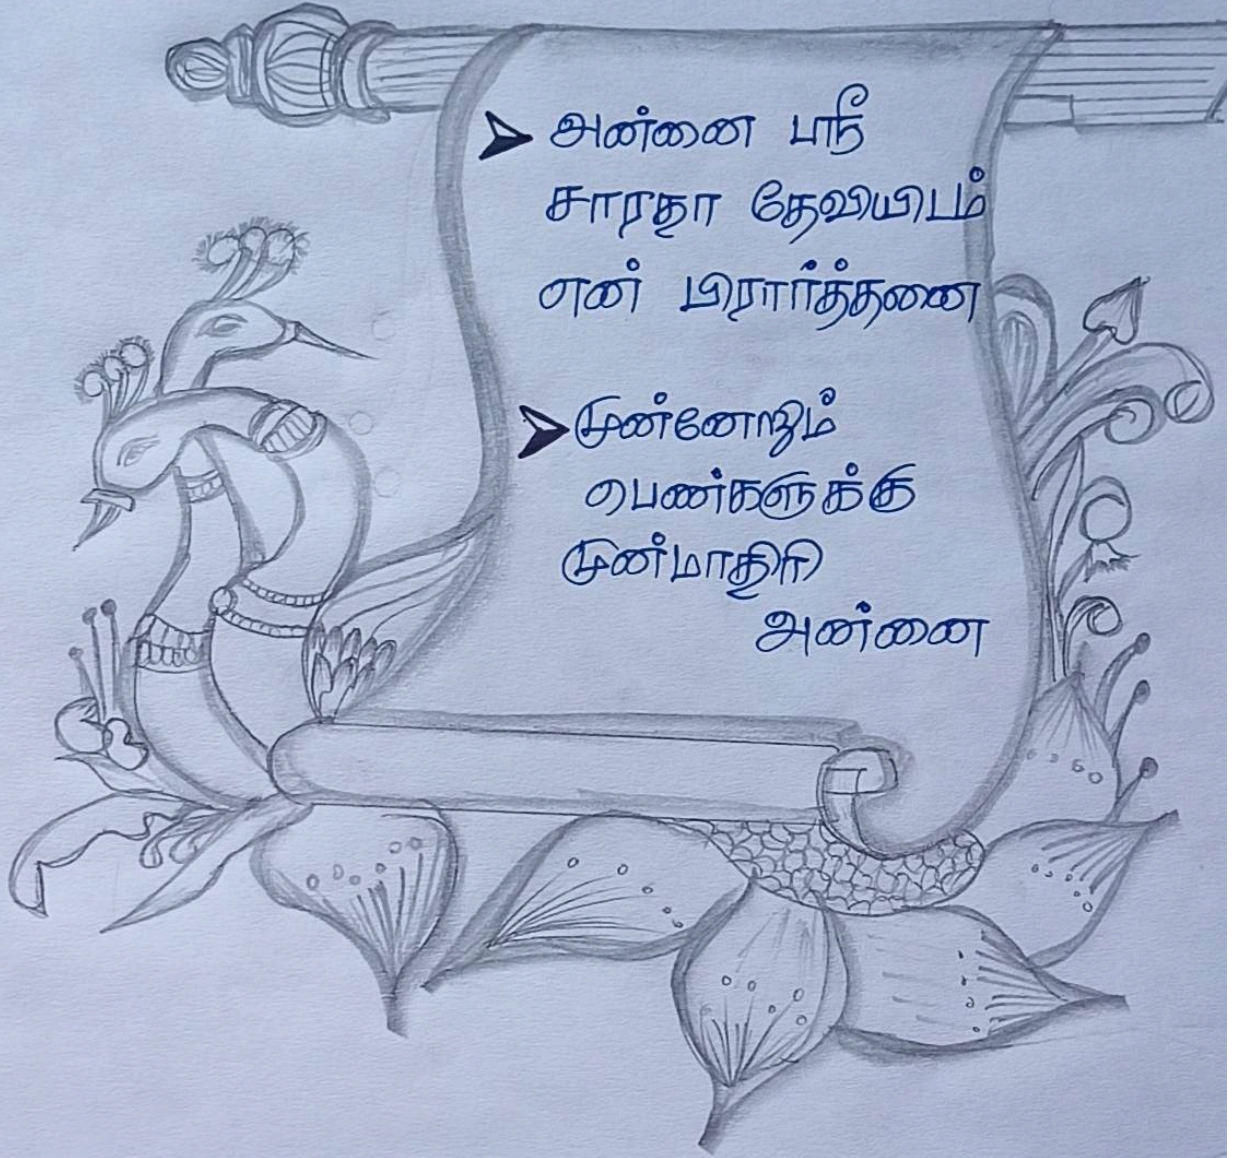 ➤ அன்னை ஸ்ரீ
சாரதா தேவியிடம்
என் பிரார்த்தனை
➤ முன்னேறும்
பெண்களுக்கு
முன்மாதிரி
அன்னை